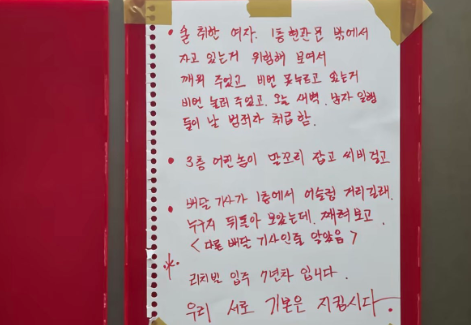 • 술 취한 여자. 1층 현관문 밖에서
자고 있는거 위험해 보여서
깨워 주었고. 비번 못누르고 있는거
비번 눌러 주었고. 오늘 새벽. 남자 일행
들이 날 범죄자 취급함.
• 3층 어린놈이 말꼬리 잡고 시비 걸고
• 배달 기사가 1층에서 어슬렁 거리길래.
누구지 뒤돌아 보았는데. 째려보고.
<다른 배달 기사인줄 알았음>
* 리치빌 입주 7년차 입니다.
우리 서로 기본은 지킵시다.